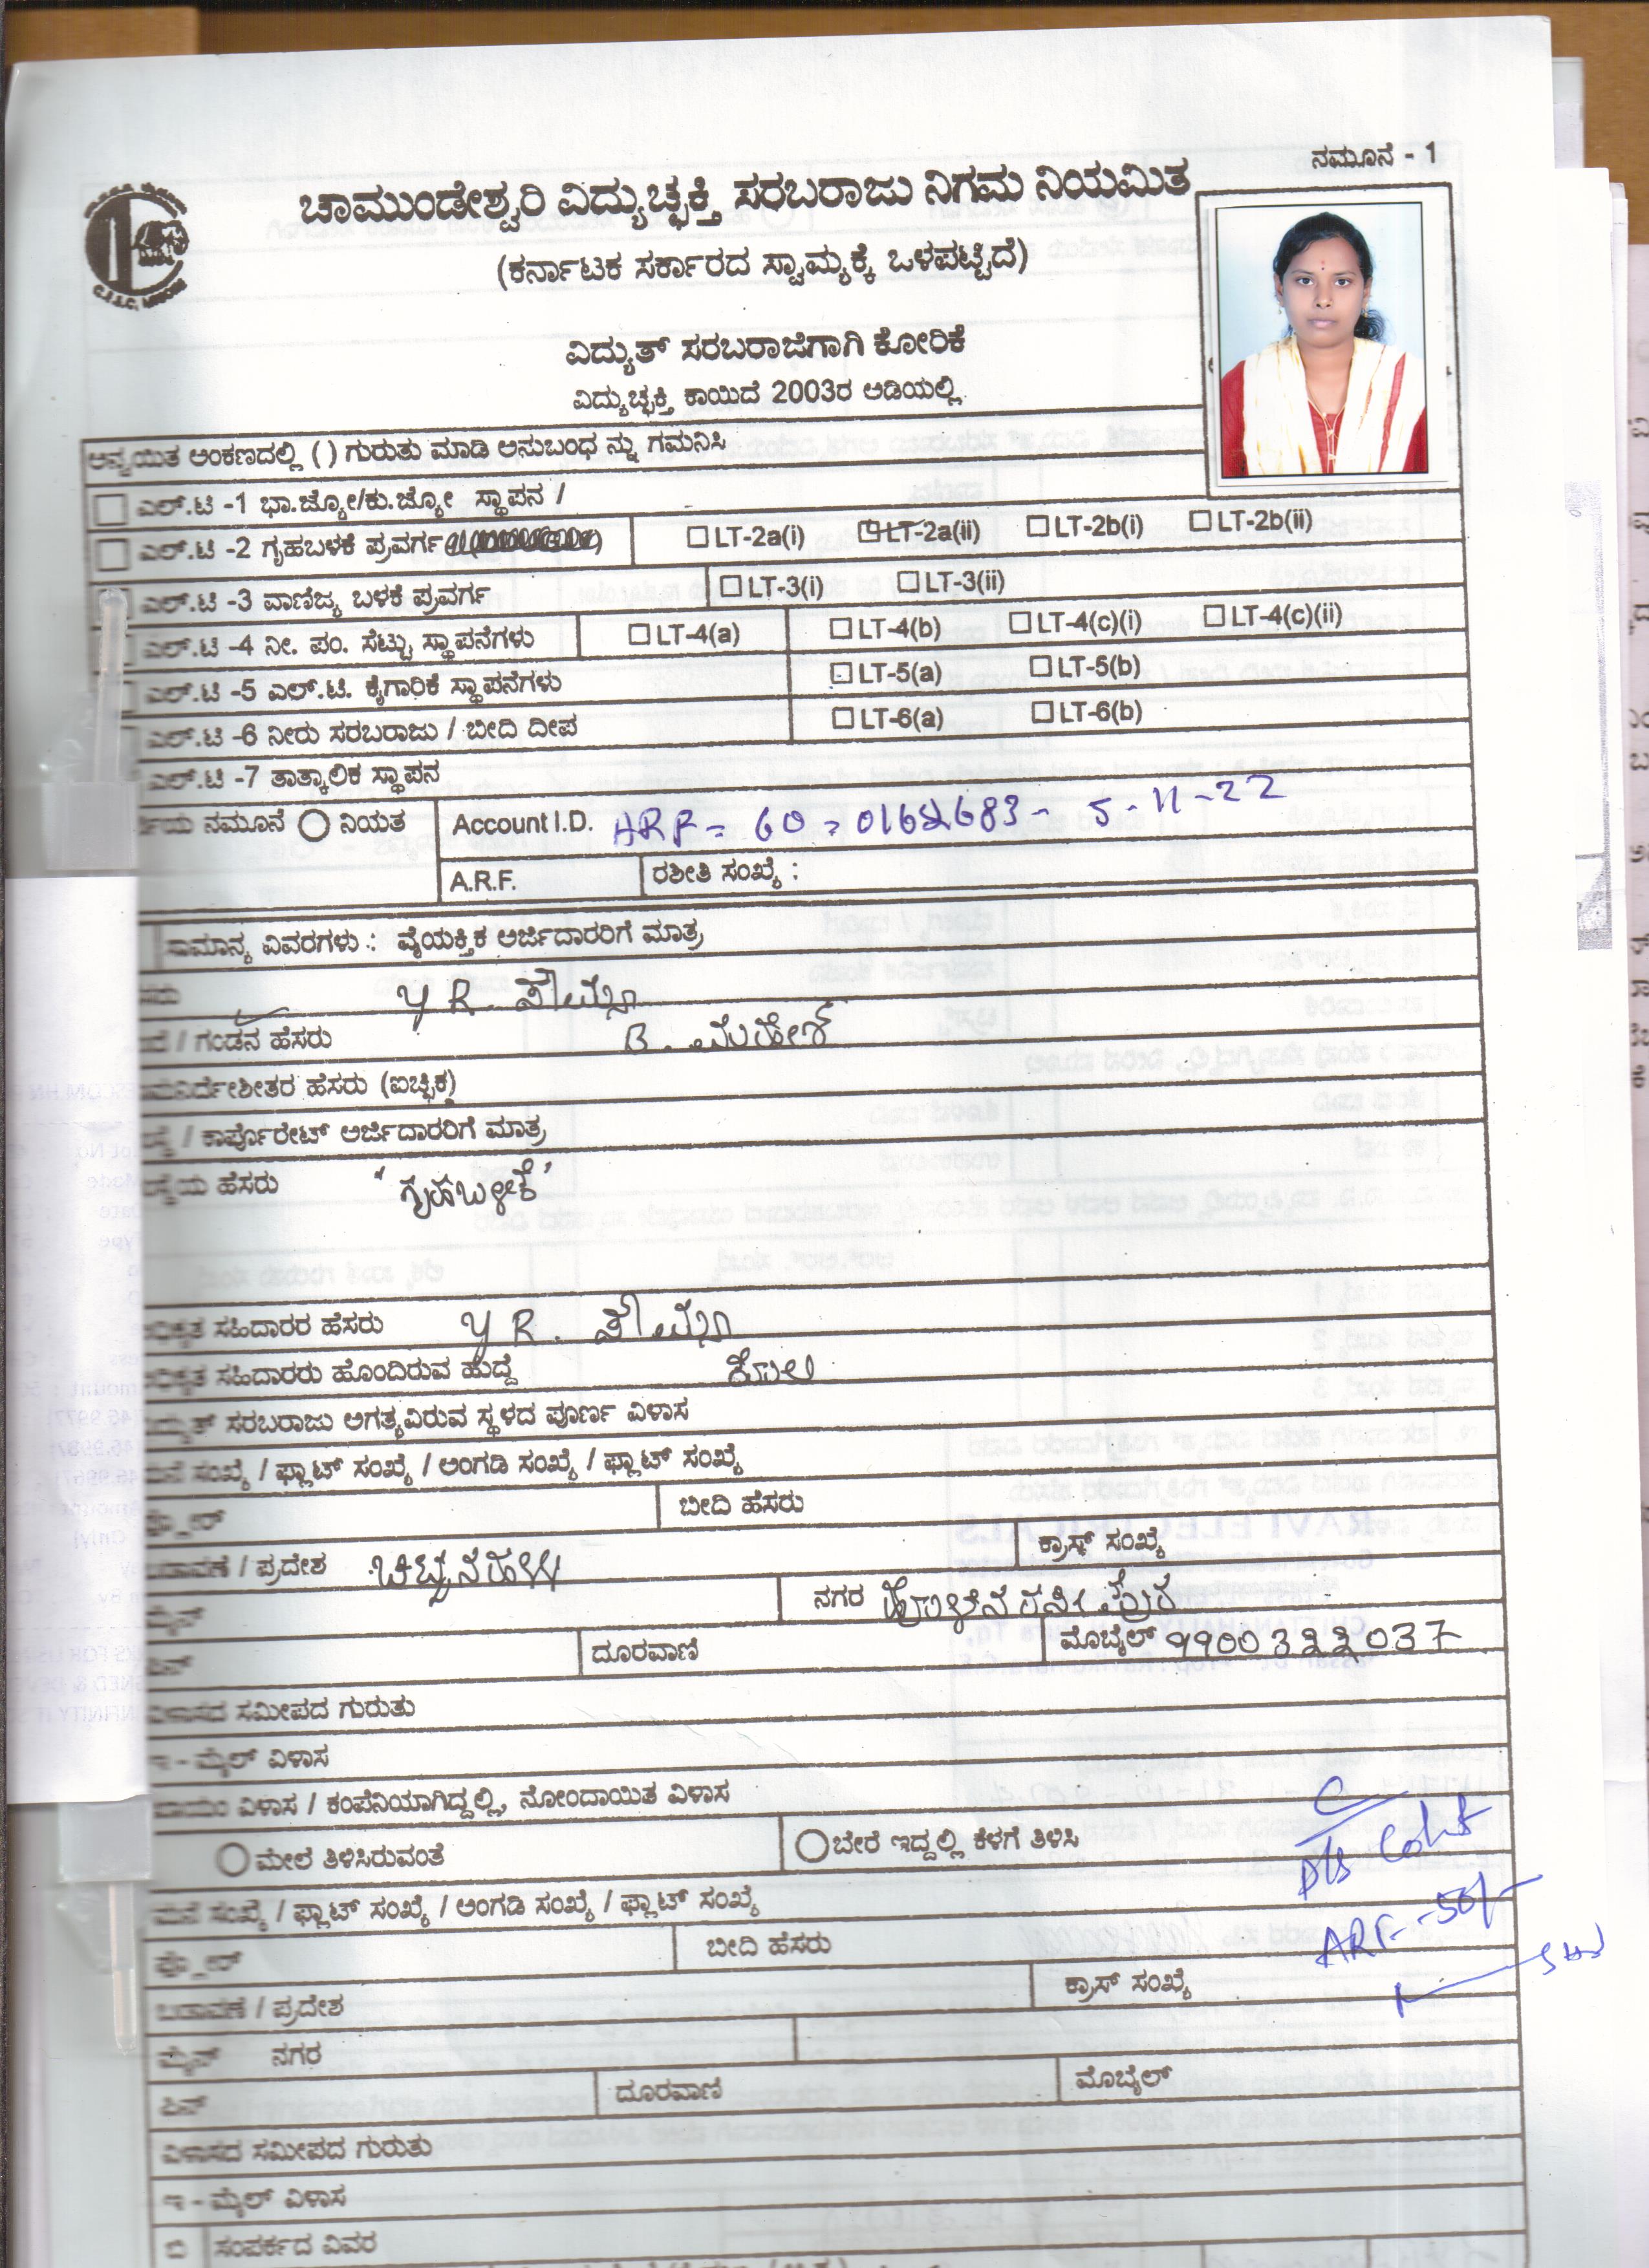 ನಮೂನೆ - 1
ಚಾಮುಂಡೇಶ್ವರಿ ವಿದ್ಯುಚ್ಛಕ್ತಿ ಸರಬರಾಜು ನಿಗಮ ನಿಯಮಿತ
(ಕರ್ನಾಟಕ ಸರ್ಕಾರದ ಸ್ವಾಮ್ಯಕ್ಕೆ ಒಳಪಟ್ಟಿದೆ)
ವಿದ್ಯುತ್ ಸರಬರಾಜಿಗಾಗಿ ಕೋರಿಕೆ
ವಿದ್ಯುಚ್ಛಕ್ತಿ ಕಾಯಿದೆ 2003ರ ಅಡಿಯಲ್ಲಿ
ಅನ್ವಯಿತ ಅಂಕಣದಲ್ಲಿ ( ) ಗುರುತು ಮಾಡಿ ಅನುಬಂಧ ನ್ನು ಗಮನಿಸಿ
ಎಲ್.ಟಿ -1 ಭಾ.ಜ್ಯೋ/ಕು.ಜ್ಯೋ ಸ್ಥಾಪನ /
ಎಲ್.ಟಿ -2 ಗೃಹಬಳಕೆ ಪ್ರವರ್ಗ LT-2a(i) LT-2a(ii) LT-2b(i) LT-2b(ii)
ಎಲ್.ಟಿ -3 ವಾಣಿಜ್ಯ ಬಳಕೆ ಪ್ರವರ್ಗ LT-3(i) LT-3(ii)
ಎಲ್.ಟಿ -4 ನೀ. ಪಂ. ಸೆಟ್ಟು ಸ್ಥಾಪನೆಗಳು LT-4(a) LT-4(b) LT-4(c)(i) LT-4(c)(ii)
ಎಲ್.ಟಿ -5 ಎಲ್.ಟಿ. ಕೈಗಾರಿಕೆ ಸ್ಥಾಪನೆಗಳು LT-5(a) LT-5(b)
ಎಲ್.ಟಿ -6 ನೀರು ಸರಬರಾಜು / ಬೀದಿ ದೀಪ LT-6(a) LT-6(b)
ಎಲ್.ಟಿ -7 ತಾತ್ಕಾಲಿಕ ಸ್ಥಾಪನ
ನಮೂನೆ ನಿಯತ Account I.D. 5-11-22
A.R.F. ರಶೀತಿ ಸಂಖ್ಯೆ :
ಸಾಮಾನ್ಯ ವಿವರಗಳು : ವೈಯಕ್ತಿಕ ಅರ್ಜಿದಾರರಿಗೆ ಮಾತ್ರ
Y R.
/ ಗಂಡನ ಹೆಸರು B. ಮಹೇಶ್
ಹೆಸರು (ಐಚ್ಛಿಕ)
/ ಕಾರ್ಪೊರೇಟ್ ಅರ್ಜಿದಾರರಿಗೆ ಮಾತ್ರ
ಹೆಸರು 'ಗೃಹಬಳಕೆ'
ಸಹಿದಾರರ ಹೆಸರು Y R.
ಸಹಿದಾರರು ಹೊಂದಿರುವ ಹುದ್ದೆ
ಸರಬರಾಜು ಅಗತ್ಯವಿರುವ ಸ್ಥಳದ ಪೂರ್ಣ ವಿಳಾಸ
ಮನೆ ಸಂಖ್ಯೆ / ಫ್ಲಾಟ್ ಸಂಖ್ಯೆ / ಅಂಗಡಿ ಸಂಖ್ಯೆ / ಫ್ಲಾಟ್ ಸಂಖ್ಯೆ
ಬೀದಿ ಹೆಸರು
ಬಡಾವಣೆ / ಪ್ರದೇಶ ಕ್ರಾಸ್ ಸಂಖ್ಯೆ
ಮೈನ್ ನಗರ
ಪಿನ್ ದೂರವಾಣಿ ಮೊಬೈಲ್
ವಿಳಾಸದ ಸಮೀಪದ ಗುರುತು
ಇ - ಮೈಲ್ ವಿಳಾಸ
ವಿಳಾಸ / ಕಂಪೆನಿಯಾಗಿದ್ದಲ್ಲಿ, ನೋಂದಾಯಿತ ವಿಳಾಸ
ಮೇಲೆ ತಿಳಿಸಿರುವಂತೆ ಬೇರೆ ಇದ್ದಲ್ಲಿ ಕೆಳಗೆ ತಿಳಿಸಿ
ಮನೆ ಸಂಖ್ಯೆ / ಫ್ಲಾಟ್ ಸಂಖ್ಯೆ / ಅಂಗಡಿ ಸಂಖ್ಯೆ / ಫ್ಲಾಟ್ ಸಂಖ್ಯೆ
ಫ್ಲೋರ್ ಬೀದಿ ಹೆಸರು ARF -50/-
ಬಡಾವಣೆ / ಪ್ರದೇಶ ಕ್ರಾಸ್ ಸಂಖ್ಯೆ
ಮೈನ್ ನಗರ
ಪಿನ್ ದೂರವಾಣಿ ಮೊಬೈಲ್
ವಿಳಾಸದ ಸಮೀಪದ ಗುರುತು
ಇ - ಮೈಲ್ ವಿಳಾಸ
ಬಿ ಸಂಪರ್ಕದ ವಿವರ